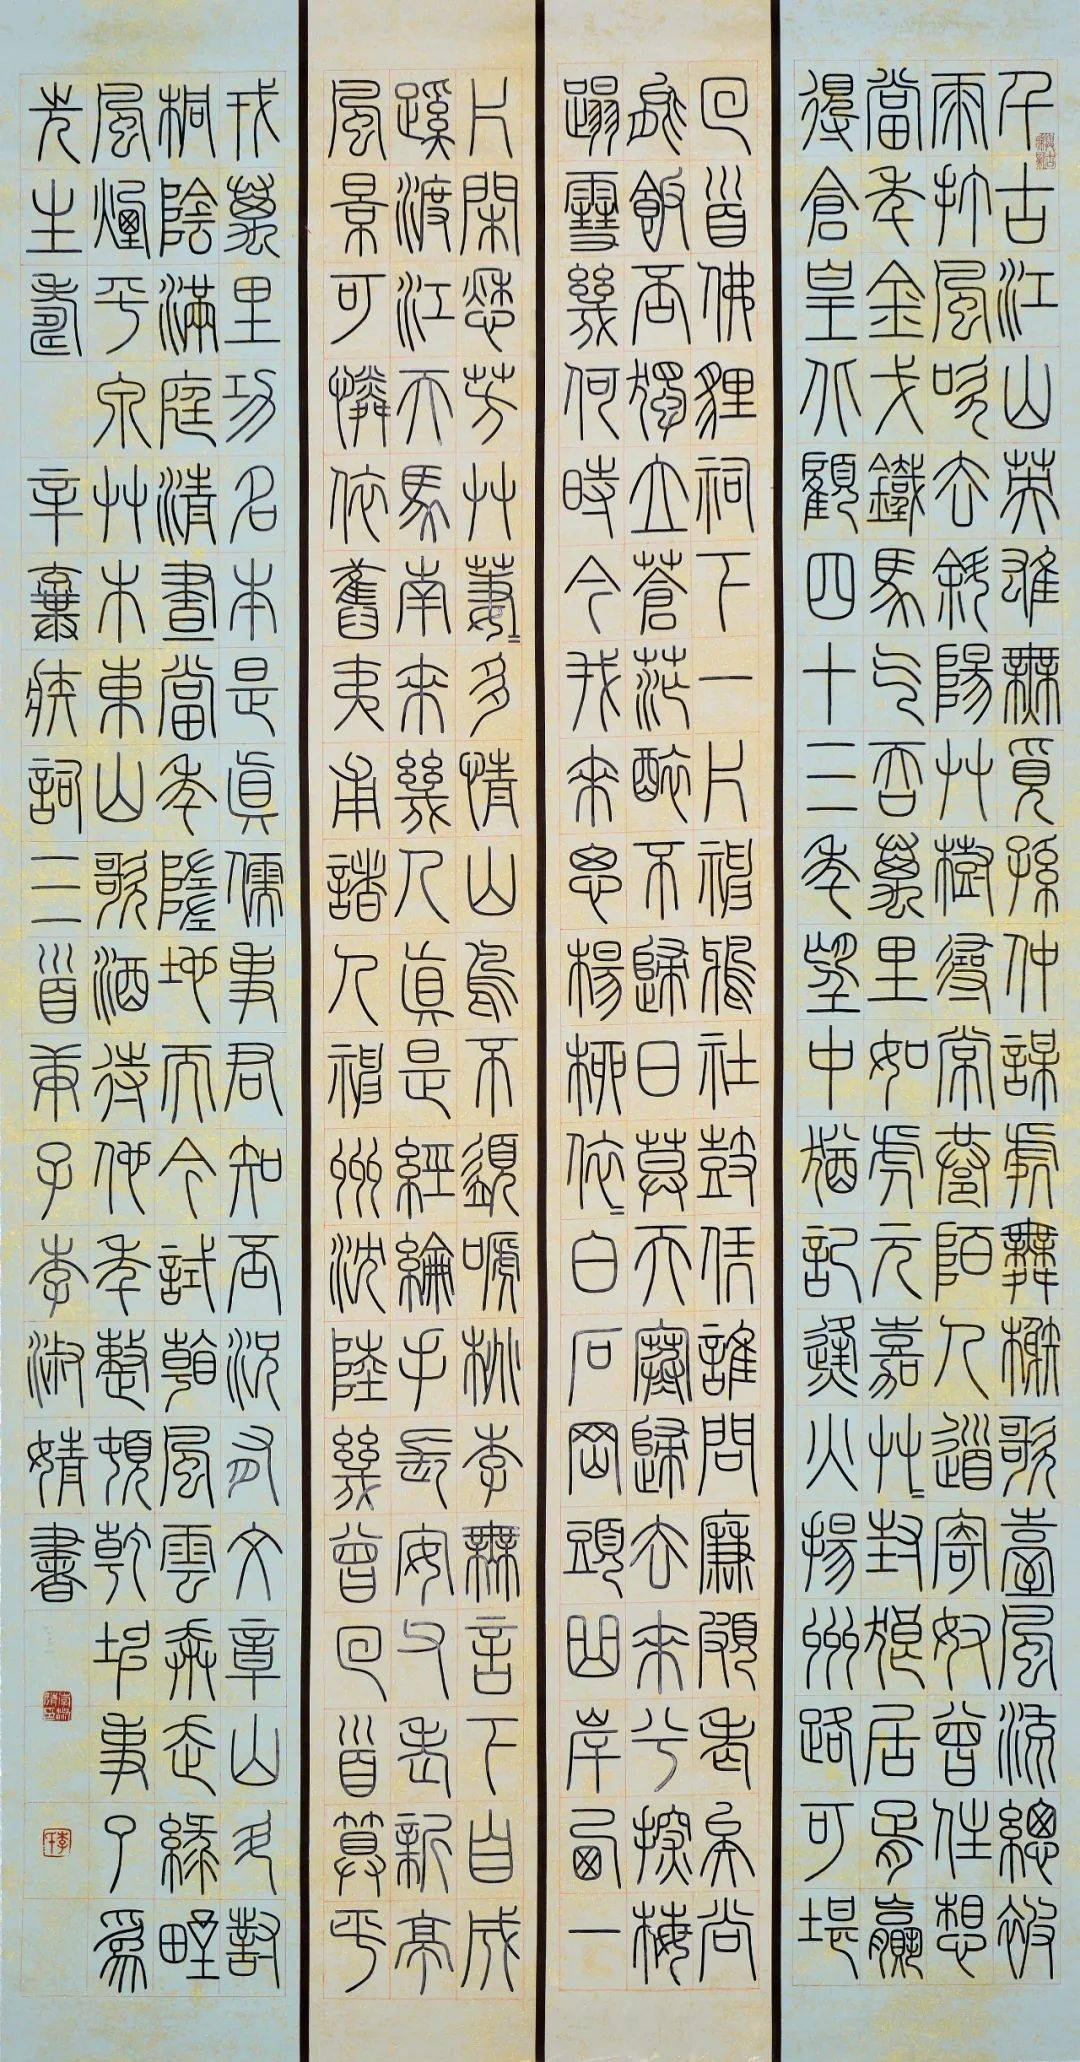 千古江山英雄無覓孫仲謀處舞榭歌臺風流總被
雨打風吹去斜陽艸樹尋常巷陌人道寄奴曾住想
當年金戈鐵馬气吞萬里如虎元嘉艸〻封狼居胥贏
得倉皇北顧四十三年望中猶記烽火揚州路可堪
回首佛狸祠下一片神鴉社鼓凭誰問廉頗老矣尚
能飯否獨立蒼茫醉不歸日暮天寒歸去來兮探梅
踏雪幾何時今我來思楊柳依〻白石岡頭曲岸西一
片閑愁芳艸萋〻多情山鳥不須嗁桃李無言下自成
蹊渡江天馬南來幾人真是經綸手長安父老新亭
風景可憐依舊夷甫諸人神州沈陸幾曾回首算平
戎萬里功名本是真儒事君知否況有文章山斗對
桐陰滿庭清晝當年墮地而今試看風雲奔走綠野
風煙平泉艸木東山歌酒待他年整頓乾坤事了為
先生壽 辛棄疾詞三首庚子李淑婧書